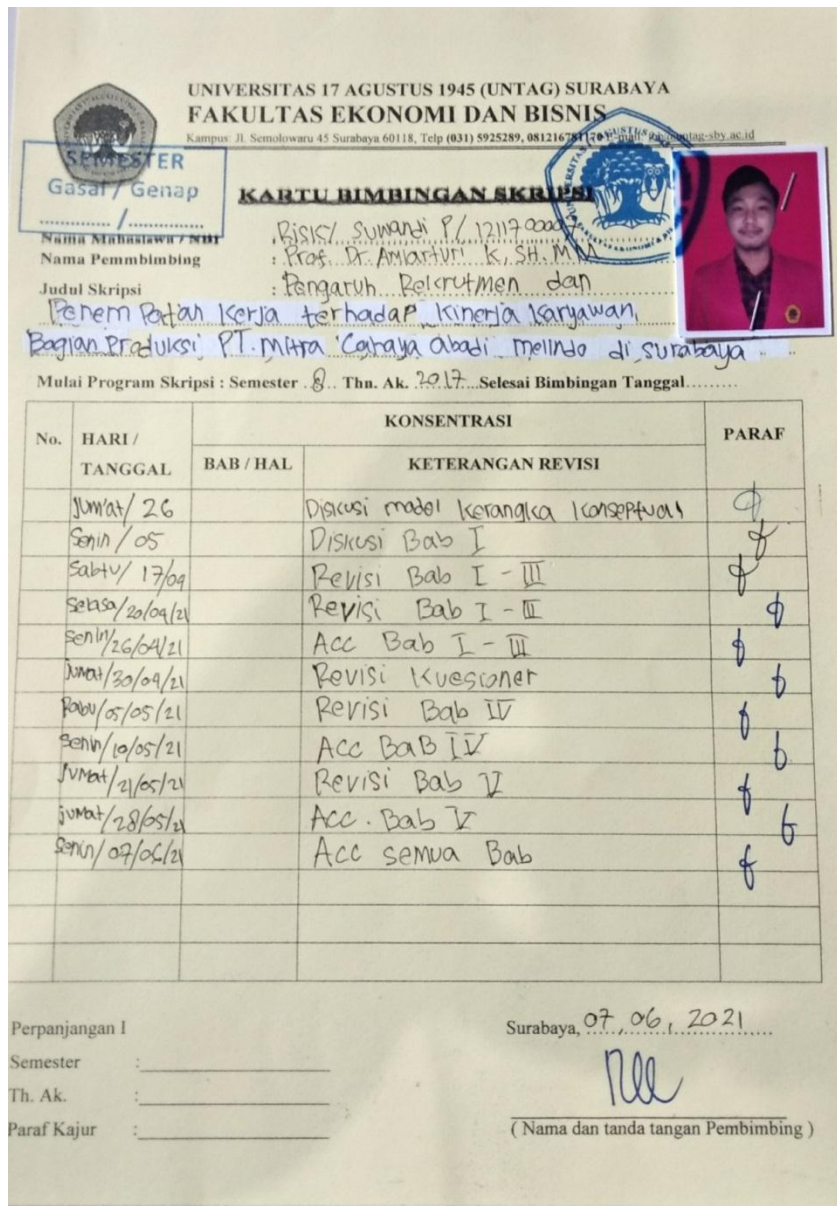 UNIVERSITAS 17 AGUSTUS 1945 (UNTAG) SURABAYA
FAKULTAS EKONOMI DAN BISNIS
Kampus: Jl. Semolowaru 45 Surabaya 60118, Telp (031) 5925289,
SEMESTER
Gasal / Genap
............ / ............
KARTU BIMBINGAN SKRIPSI
Nama Mahasiswa / NBI Riski Suwandi P/
Nama Pemmbimbing : Prof. Dr. Amiartuti K, SH. MM
Judul Skripsi : Pengaruh Rekrutmen dan
Penem Patan Kerja terhadap Kinerja Karyawan,
Bagian Produksi PT. Mitra Cahaya abadi melindo di surabaya
Mulai Program Skripsi : Semester 8 Thn. Ak. 2017 Selesai Bimbingan Tanggal.........
No. HARI / TANGGAL KONSENTRASI PARAF
BAB / HAL KETERANGAN REVISI
Jum'at/ 26 Diskusi model kerangka konseptual
Senin / 05 Diskusi Bab I
Sabtu/ 17/04 Revisi Bab I - III
Selasa/20/04/21 Revisi Bab I - III
Senin/26/04/21 Acc Bab I - III
Jumat/30/04/21 Revisi Kuesioner
Rabu/05/05/21 Revisi Bab IV
Senin/10/05/21 Acc BaB IV
Jumat/21/05/21 Revisi Bab V
jumat/28/05/21 Acc. Bab V
Senin/07/06/21 Acc semua Bab
Perpanjangan I
Surabaya, 07, 06, 2021
Semester :
Th. Ak. :
Paraf Kajur :
( Nama dan tanda tangan Pembimbing )